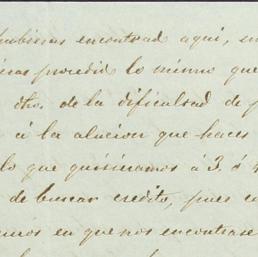 hubieras encontrad aquí, en
procedid lo mismo que
dho. de la dificultad de p
á la alucion que haces
lo que quisieramos á 3. ó 4
de buscar credito, pues e
en que nos encontrase